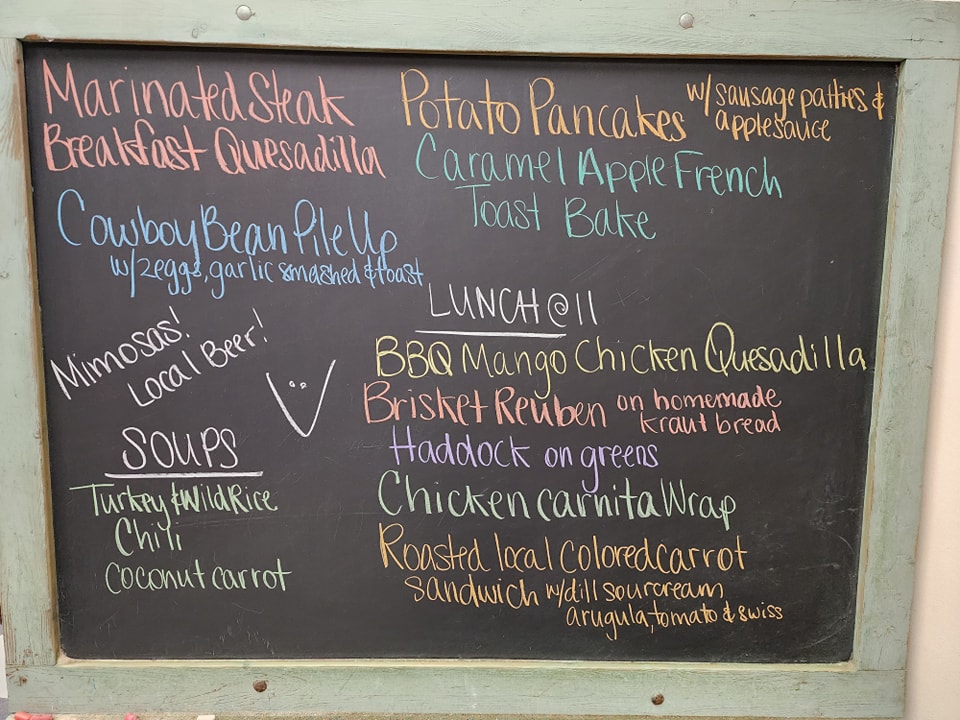 Marinated Steak
Breakfast Quesadilla
Cowboy Bean Pile Up
w/2eggs, garlic smashed & toast
Mimosas!
Local Beer!
SOUPS
Turkey & Wild Rice
Chili
Coconut carrot
Potato Pancakes w/ sausage patties &
applesauce
Caramel Apple French
Toast Bake
LUNCH @ 11
BBQ Mango Chicken Quesadilla
Brisket Reuben on homemade
kraut bread
Haddock on greens
Chicken carnita Wrap
Roasted local colored carrot
sandwich w/dill sourcream
arugula, tomato & swiss